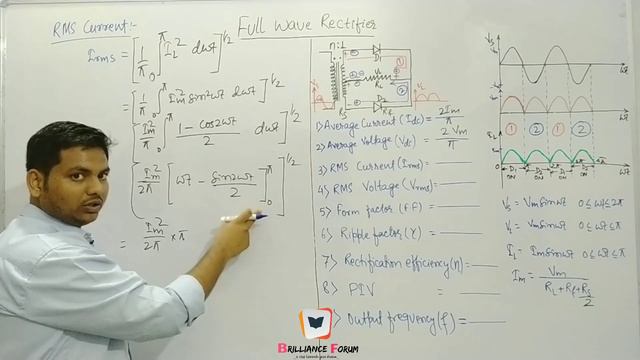 RMS Current:-
Full Wave Rectifier
Irms = [ 1/π ∫₀^π I_L² dωt ]^1/2
= [ 1/π ∫₀^π Im² sin²ωt dωt ]^1/2
[ Im²/π ∫₀^π (1 - cos2ωt)/2 dωt ]^1/2
[ Im²/2π [ ωt - sin2ωt/2 ]₀^π ]^1/2
= Im²/2π × π
n:1
D1
RL
D2
Rf
Rs
1) Average Current (Idc) = 2Im/π
2) Average Voltage (Vdc) = 2Vm/π
3) RMS Current (Irms) =
4) RMS Voltage (Vrms) =
5) Form factor (FF) =
6) Ripple factor (γ) =
7) Rectification efficiency (η) =
8) PIV =
> Output frequency (f) =
Vs
ωt
ωt
1 2 1 2
ωt
D1 ON D2 ON D1 ON D2 ON
Vs = Vm sinωt 0 ≤ ωt ≤ 2π
VL = Vm sinωt 0 ≤ ωt ≤ π
iL = Im sinωt 0 ≤ ωt ≤ π
Im = Vm / (RL + Rf + Rs/2)
BRILLIANCE FORUM